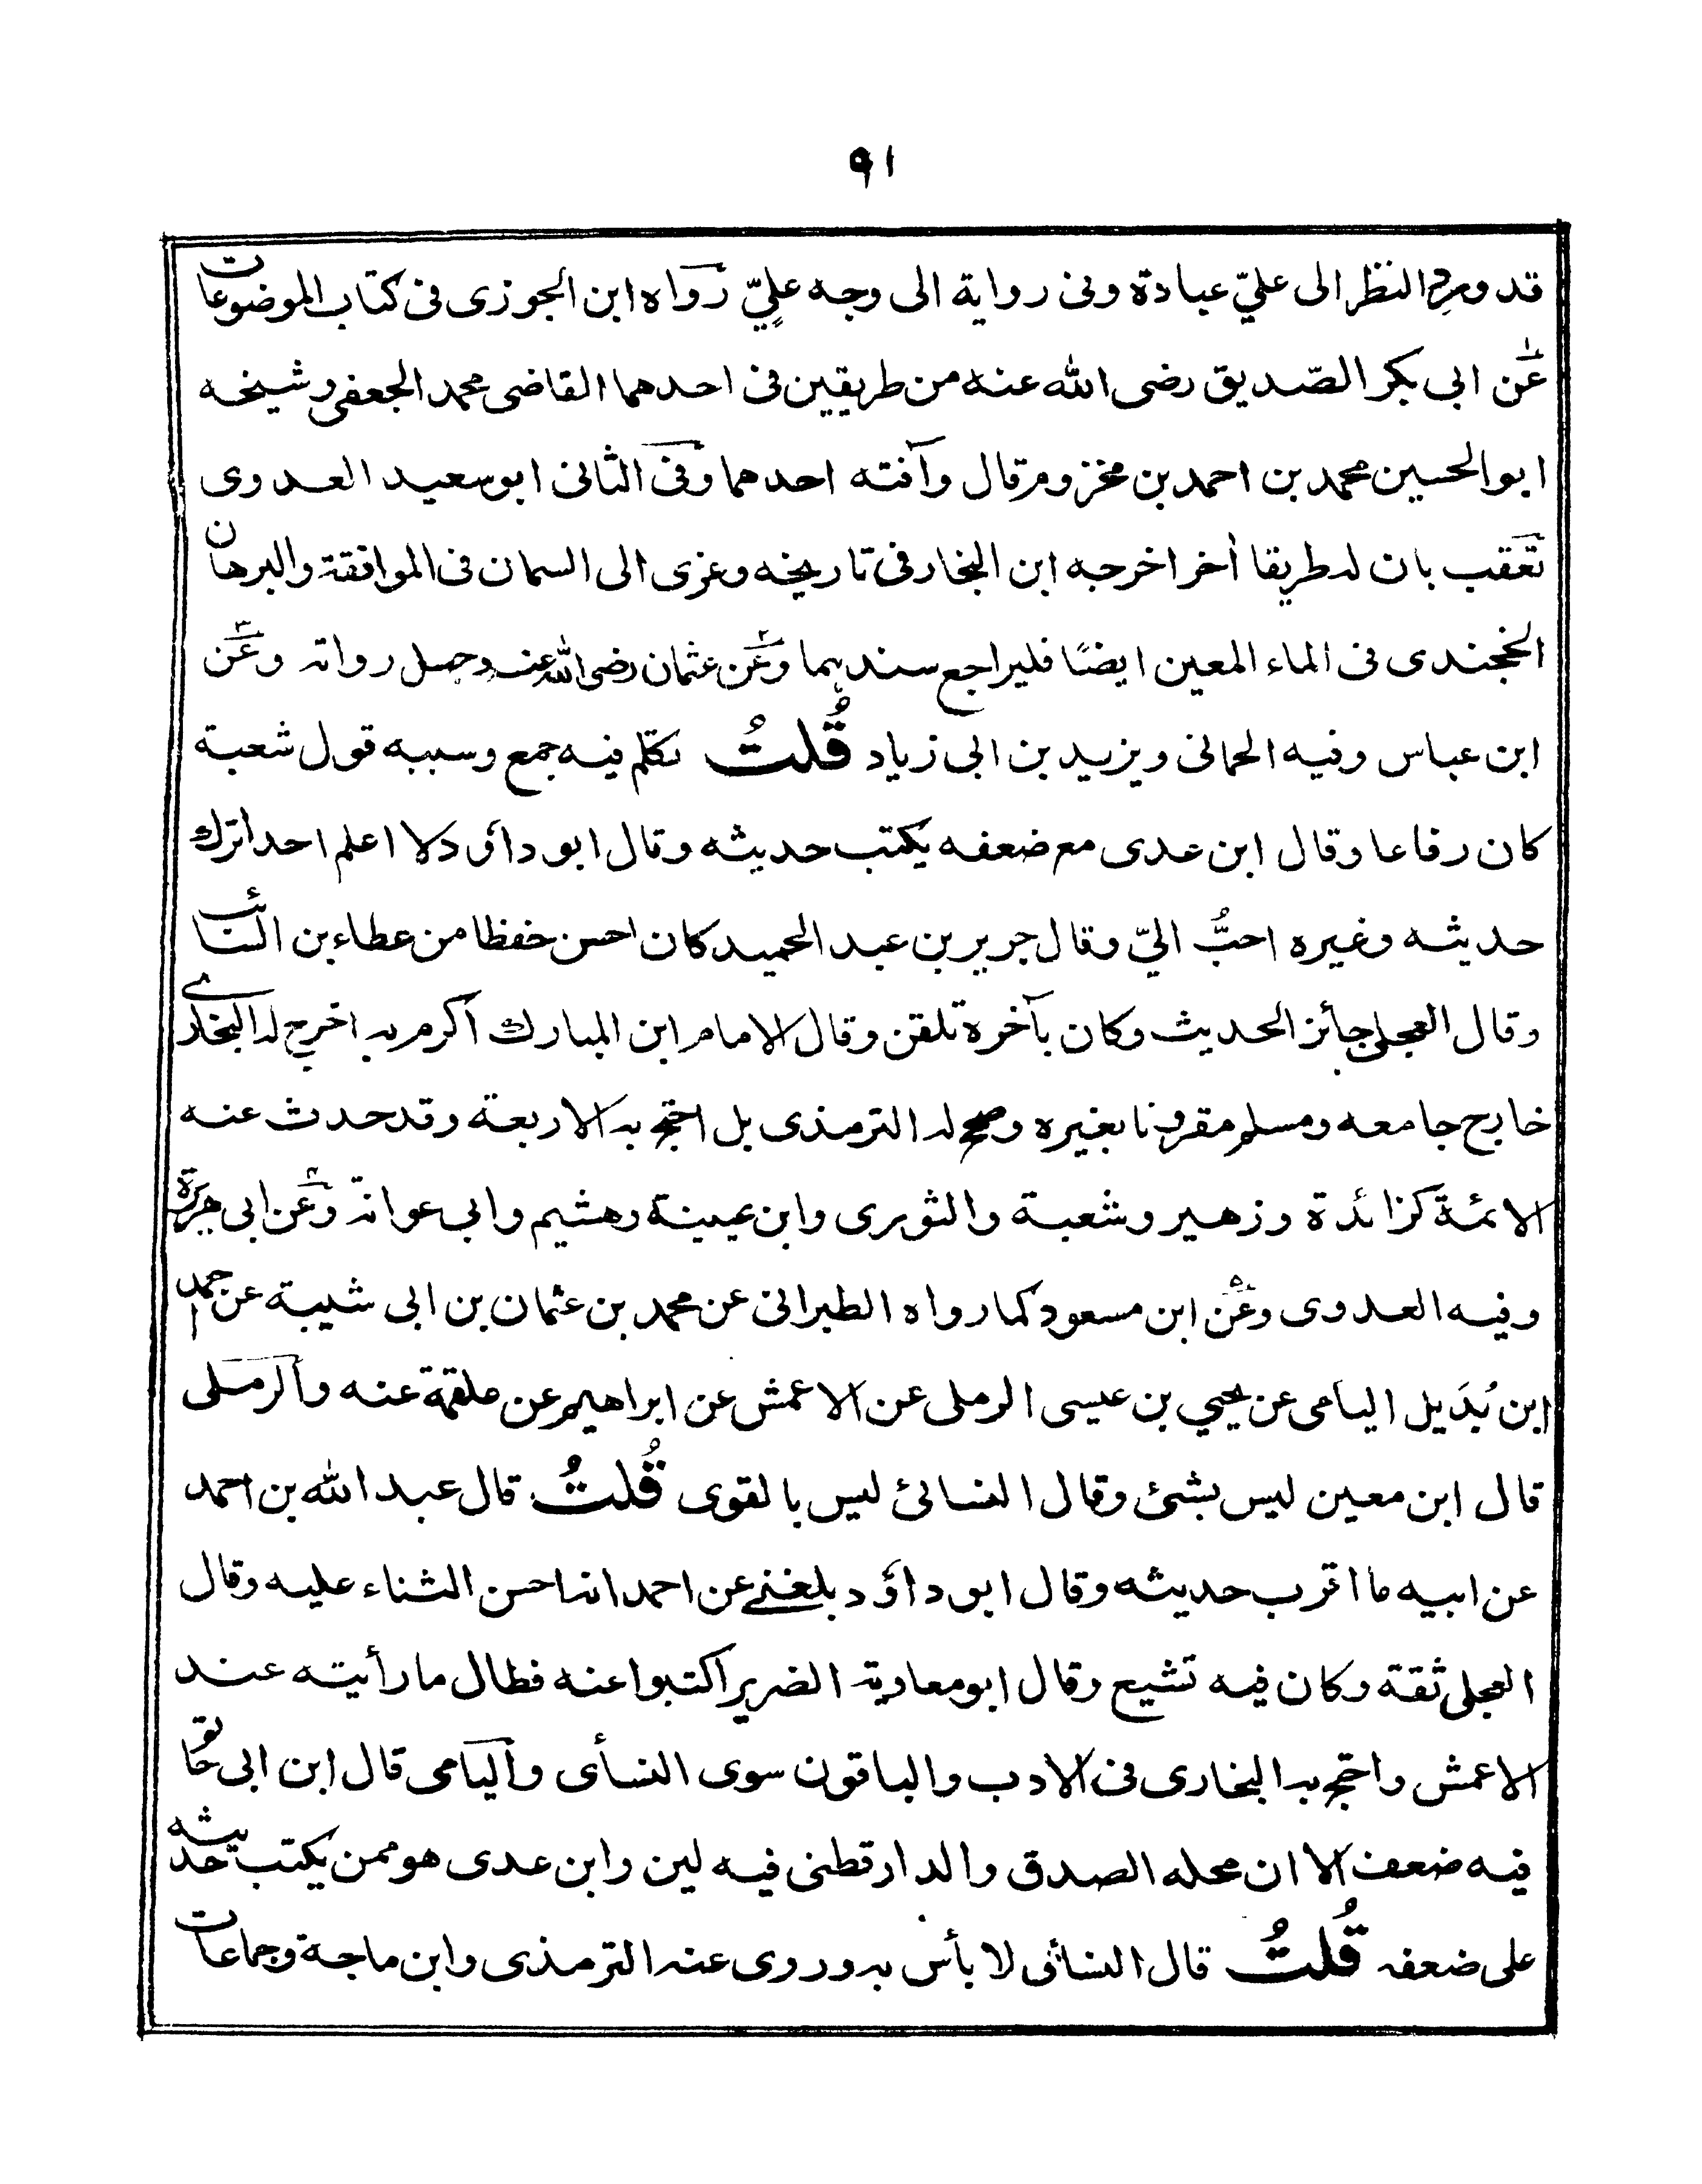 ٩١
قد ورد النظر الى عليّ عبادة وفى رواية الى وجه عليّ رواه ابن الجوزى فى كتاب الموضوعات
عن ابى بكر الصّديق رضى الله عنه من طريقين فى احدهما القاضى محمد الجعفى وشيخه
ابو الحسين محمد بن احمد بن مخزوم قال وآفته احدهما وفى الثانى ابو سعيد العدوى
تعقب بان له طريقا أخر اخرجه ابن النجار فى تاريخه وعزى الى السمان فى الموافقة والبرهان
الخجندى فى الماء المعين ايضًا فليراجع سندهما وعن عثمان رضى الله عنه وجهل رواته وعن
ابن عباس وفيه الحمانى ويزيد بن ابى زياد قُلتُ تكلم فيه جمع وسببه قول شعبة
كان رفاعا وقال ابن عدى مع ضعفه يكتب حديثه وقال ابو داؤد لا اعلم احدا ترك
حديثه وغيره احبُّ اليّ وقال جرير بن عبد الحميد كان احسن حفظا من عطاء بن السائب
وقال العجلى جائز الحديث وكان بآخره تلقن وقال الامام ابن المبارك اكرم به اخرج له البخارى
خارج جامعه ومسلم مقرونا بغيره وصحح له الترمذى بل احتج به الاربعة وقد حدث عنه
الائمة كزائدة وزهير وشعبة والثورى وابن عيينة وهشيم وابى عوانة وعن ابى هريرة
وفيه العدوى وعن ابن مسعود كما رواه الطبرانى عن محمد بن عثمان بن ابى شيبة عن احمد
ابن بُدَيل اليامى عن يحيي بن عيسى الرملى عن الاعمش عن ابراهيم عن علقمة عنه والرملى
قال ابن معين ليس بشئ وقال النسائ ليس بالقوى قُلتُ قال عبد الله بن احمد
عن ابيه ما اقرب حديثه وقال ابو داؤد بلغنى عن احمد انه احسن الثناء عليه وقال
العجلى ثقة وكان فيه تشيع وقال ابو معاوية الضرير اكتبوا عنه فطال ما رأيته عند
الاعمش واحتج به البخارى فى الادب والباقون سوى النسأى واليامى قال ابن ابى حاتم
فيه ضعف الا ان محله الصدق والدارقطنى فيه لين وابن عدى هو ممن يكتب حديثه
على ضعفه قُلتُ قال النسائى لا بأس به وروى عنه الترمذى وابن ماجة وجماعات